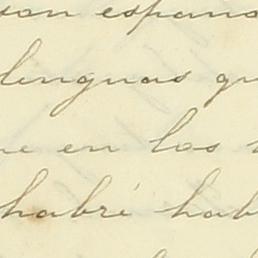 son españo
lenguas qu
ue en los
habré hab